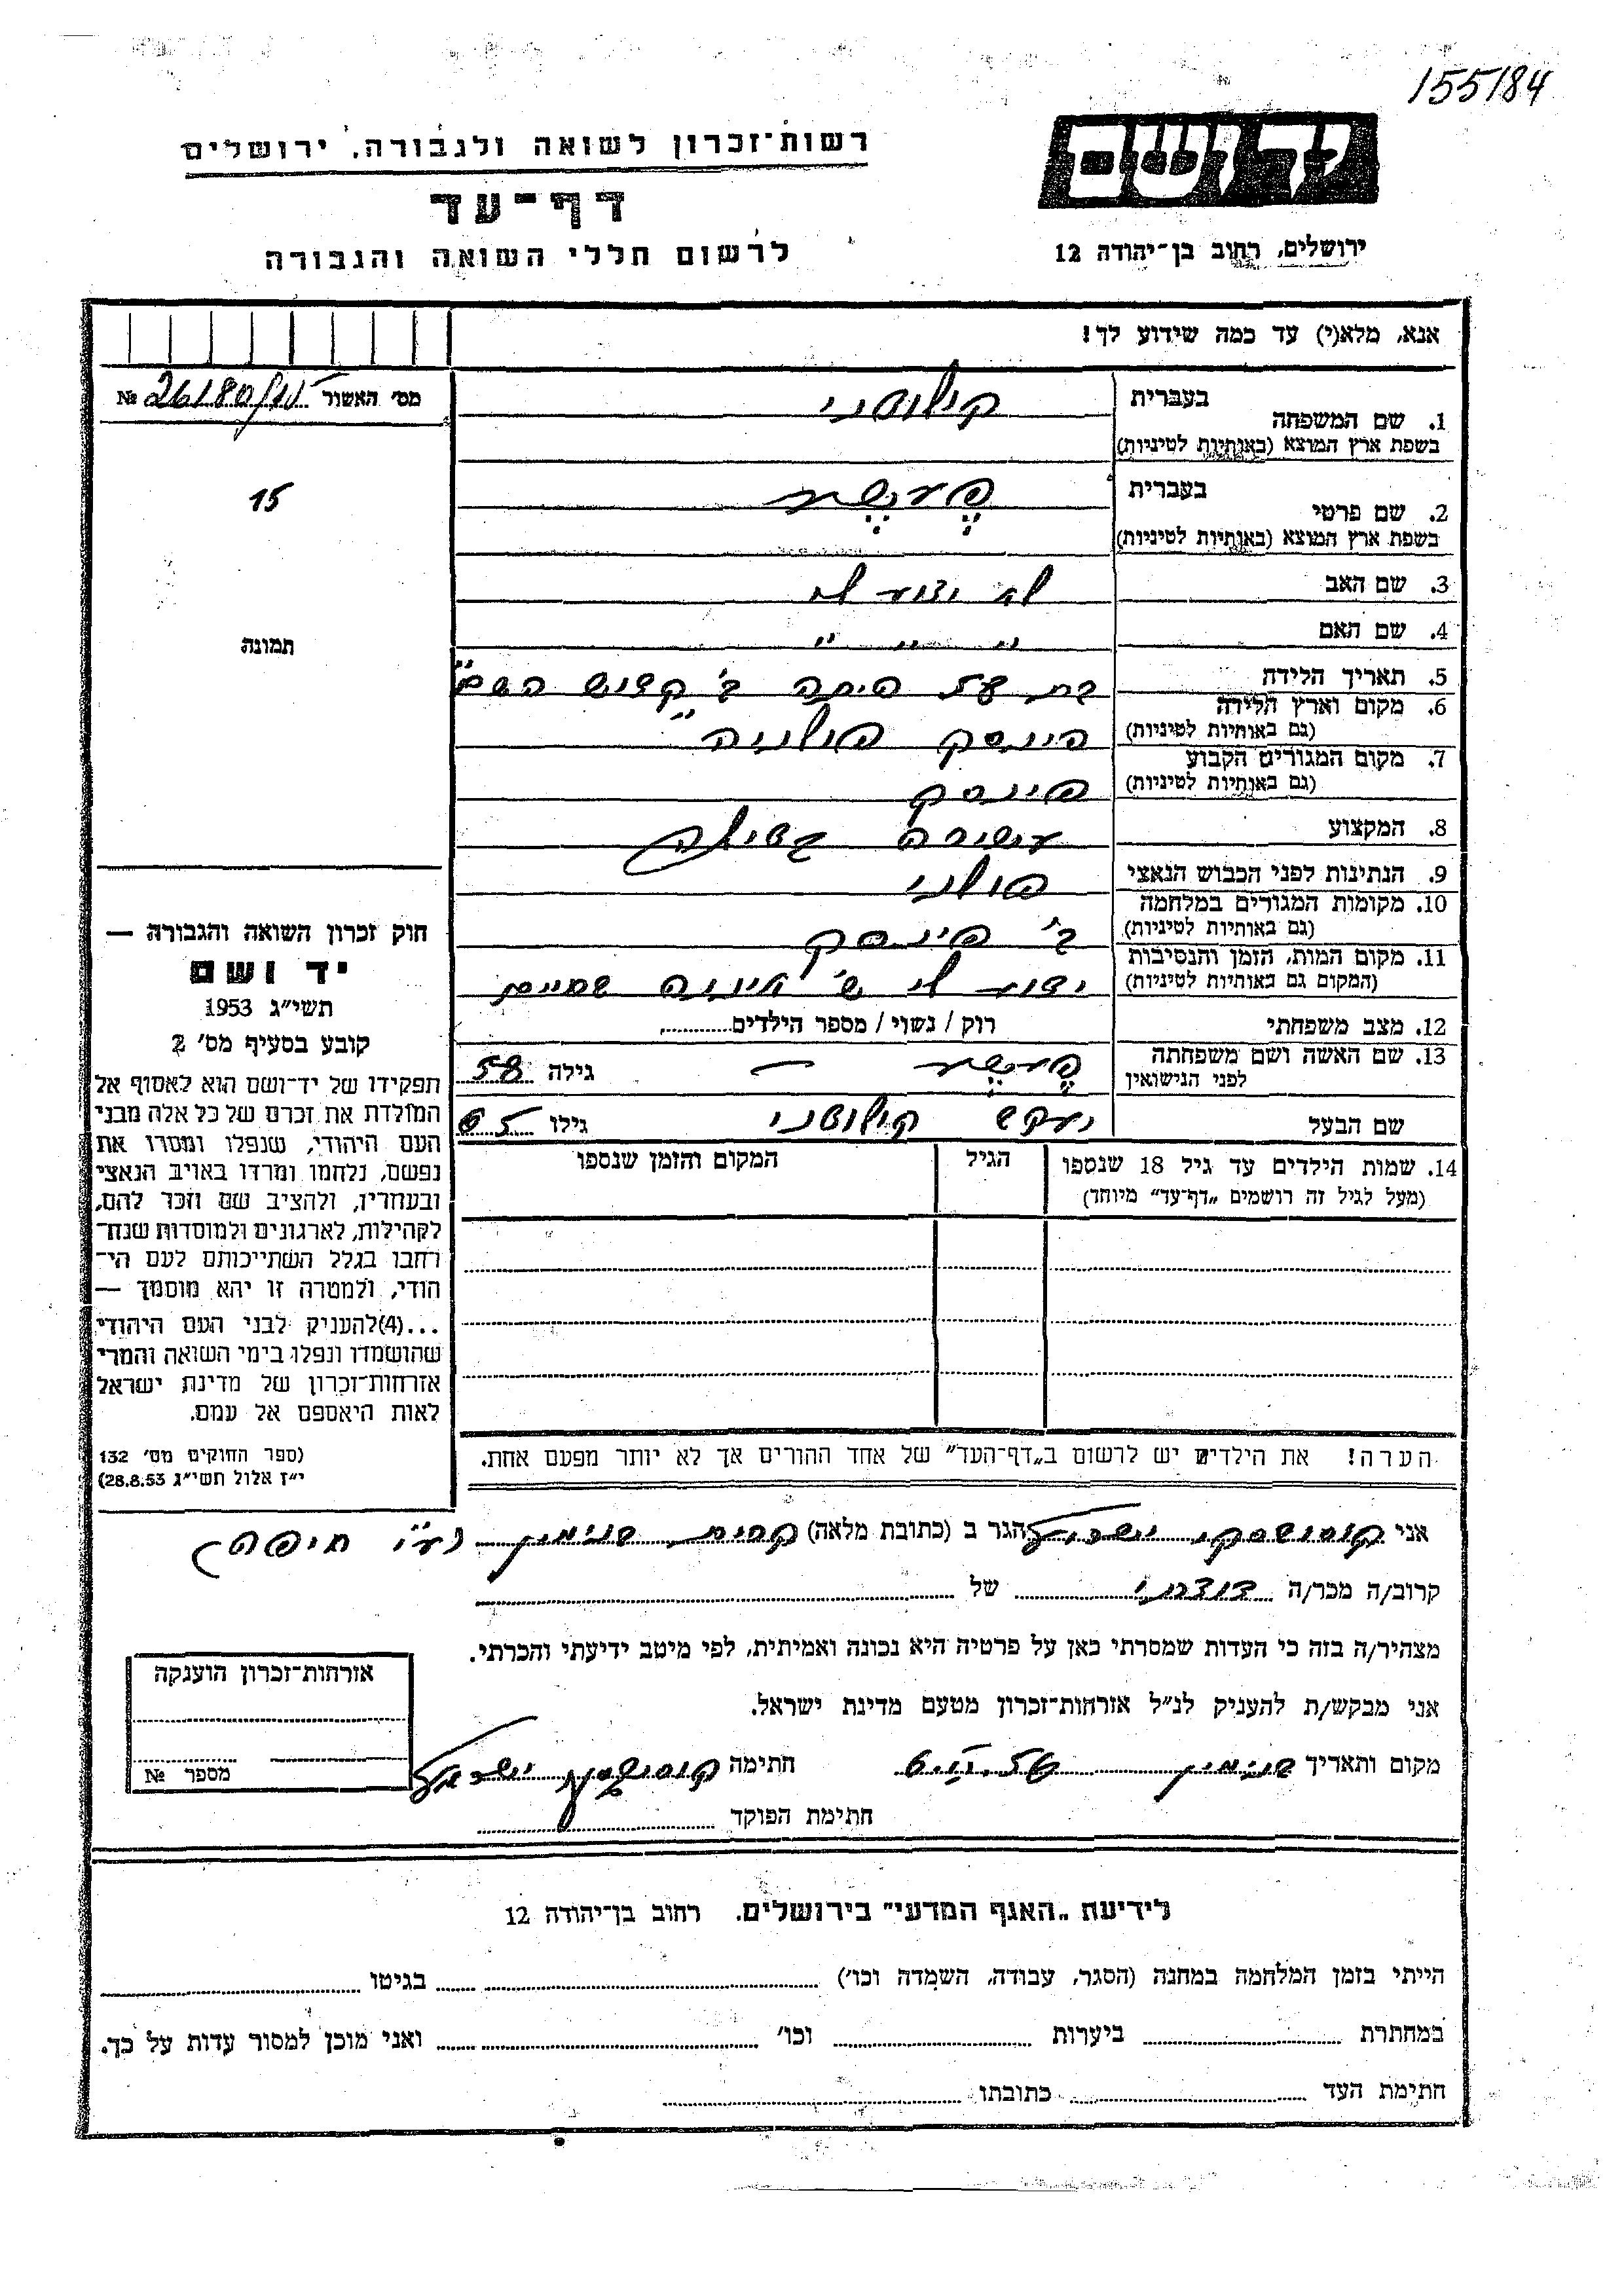 155184
יד ושם
רשות־זכרון לשואה ולגבורה, ירושלים
דף־עד
לרשום חללי השואה והגבורה
ירושלים, רחוב בן־יהודה 12
אנא, מלא(י) עד כמה שידוע לך!
מס׳ האשור № 26180/
15
תמונה
1. שם המשפחה בעברית
בשפת ארץ המוצא (באותיות לטיניות)
2. שם פרטי בעברית
בשפת ארץ המוצא (באותיות לטיניות)
3. שם האב לא ידוע לי
4. שם האם " " "
5. תאריך הלידה בת 58 היתה ב' קדוש השם"
6. מקום וארץ הלידה פינסק פולניה
(גם באותיות לטיניות)
7. מקום המגורים הקבוע פינסק
(גם באותיות לטיניות)
8. המקצוע
9. הנתינות לפני הכבוש הנאצי פולני
10. מקומות המגורים במלחמה ב' פינסק
(גם באותיות לטיניות)
11. מקום המות, הזמן והנסיבות ידוע לי ש'
(המקום גם באותיות לטיניות)
12. מצב משפחתי רוק / נשוי / מספר הילדים
13. שם האשה ושם משפחתה — גילה 58
לפני הנישואין
שם הבעל יעקב גילו 65
14. שמות הילדים עד גיל 18 שנספו הגיל המקום והזמן שנספו
(מעל לגיל זה רושמים „דף־עד״ מיוחד)
הערה! את הילדים יש לרשום ב„דף־העד״ של אחד ההורים אך לא יותר מפעם אחת.
חוק זכרון השואה והגבורה —
יד ושם
תשי״ג 1953
קובע בסעיף מס׳ 2
תפקידו של יד־ושם הוא לאסוף אל
המולדת את זכרם של כל אלה מבני
העם היהודי, שנפלו ומסרו את
נפשם, נלחמו ומרדו באויב הנאצי
ובעוזריו, ולהציב שם וזכר להם,
לקהילות, לארגונים ולמוסדות שנח־
רבו בגלל השתייכותם לעם הי־
הודי, ולמטרה זו יהא מוסמך —
...(4)להעניק לבני העם היהודי
שהושמדו ונפלו בימי השואה והמרי
אזרחות־זכרון של מדינת ישראל
לאות היאספם אל עמם.
(ספר החוקים מס׳ 132
י״ז אלול תשי״ג 28.8.53)
אני ישראל הגר ב (כתובת מלאה) קרית בנימין (ע״י חיפה)
קרוב/ה מכר/ה דודתי של
מצהיר/ה בזה כי העדות שמסרתי כאן על פרטיה היא נכונה ואמיתית, לפי מיטב ידיעתי והכרתי.
אני מבקש/ת להעניק לנ״ל אזרחות־זכרון מטעם מדינת ישראל.
מקום ותאריך חתימה ישראל
חתימת הפוקד
אזרחות־זכרון הוענקה
מספר №
לידיעת „האגף המדעי״ בירושלים. רחוב בן־יהודה 12
הייתי בזמן המלחמה במחנה (הסגר, עבודה, השמדה וכו׳) בגיטו
במחתרת ביערות וכו׳ ואני מוכן למסור עדות על כך.
חתימת העד כתובתו